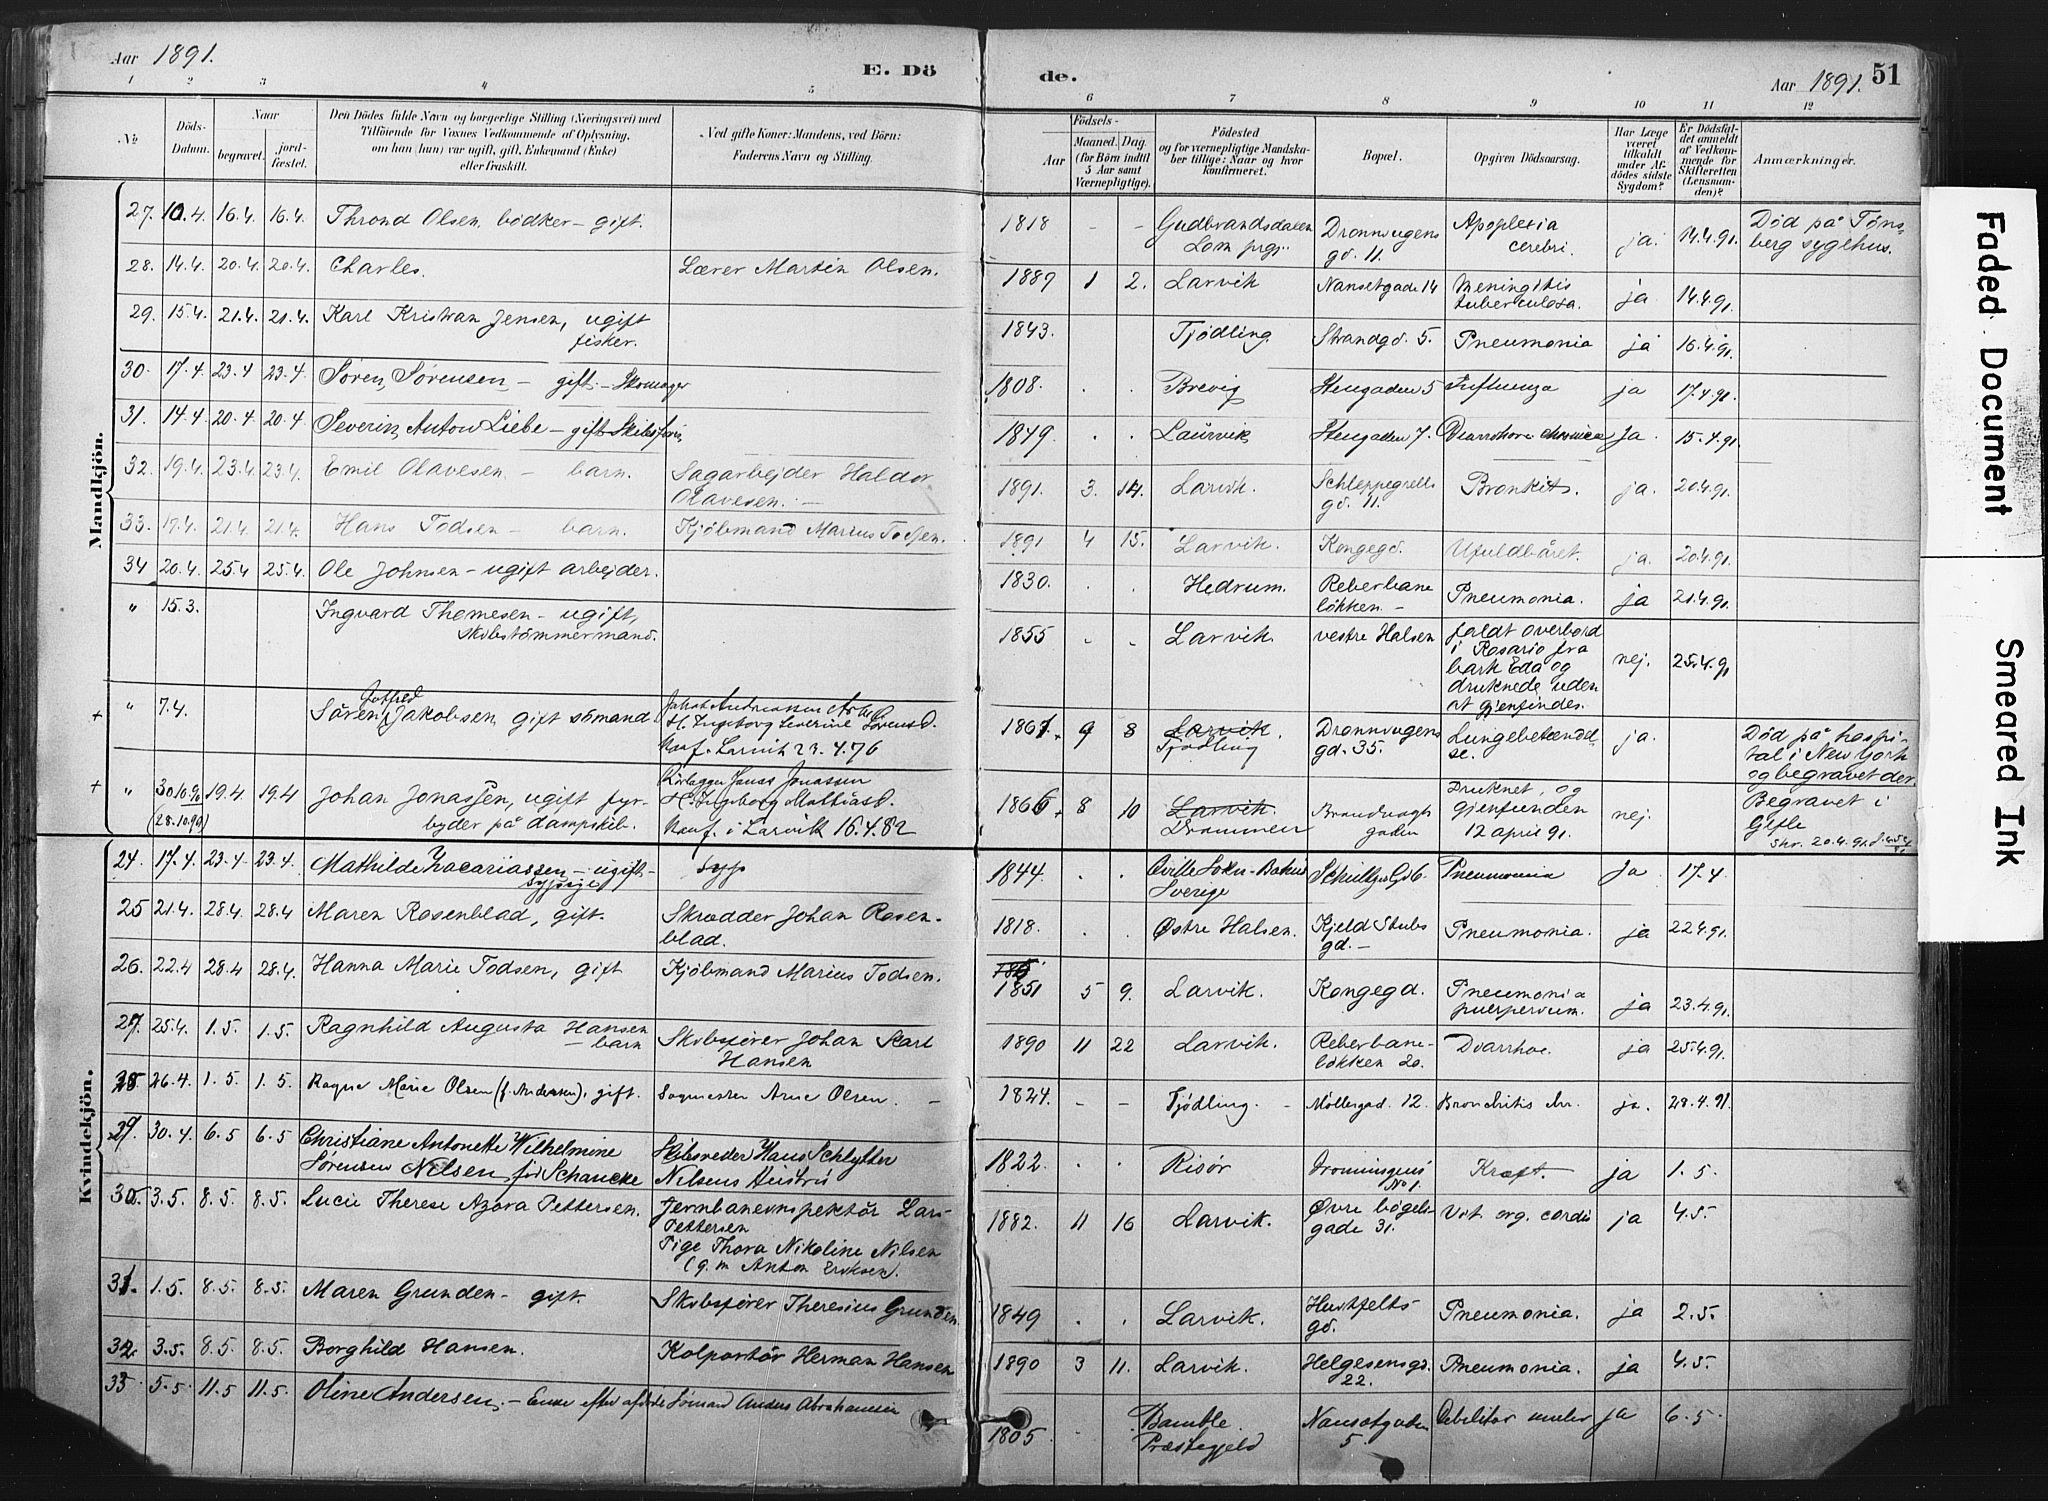 Aar 1891.
E. Dö
de.
Aar 1891.
51
1 2 3 4 5 6 7 8 9 10 11 12
No
Döds-
Datum.
Naar
begravet.
jord-
fæstet.
Den Dödes fulde Navn og borgerlige Stilling (Næringsvei) med
Tilföiende for Voxnes Vedkommende af Oplysning,
om han (hun) var ugift, gift, Enkemand (Enke)
eller fraskilt.
Ved gifte Koner: Mandens, ved Börn:
Faderens Navn og Stilling.
Födsels-
Aar
Maaned.
Dag.
(for Börn indtil
5 Aar samt
Værnepligtige).
Födested
og for værnepligtige Mandska-
ber tillige: Naar og hvor
konfirmeret.
Bopæl.
Opgiven Dödsaarsag.
Har Læge
været
tilkaldt
under Af-
dödes sidste
Sygdom?
Er Dödsfal-
det anmeldt
af Vedkom-
mende for
Skifteretten
(Lensman-
den)?
Anmærkninger.
Mandkjön.
27. 10.4. 16.4. 16.4. Thrond Olsen, bødker - gift. 1818 - - Gudbrandsdalen Dronningens Apoplexia ja. 14.4.91. Død på Tøns-
Lom prgj. gd. 11. cerebri. berg sygehus.
28. 14.4. 20.4. 20.4. Charles. Lærer Martin Olsen. 1889 1 2. Larvik Nansetgade 14 Meningitis ja 14.4.91.
tuberculosa.
29. 15.4. 21.4. 21.4. Karl Kristian Jensen, ugift 1843. Tjødling Strandgd. 5. Pneumonia ja 16.4.91.
fisker.
30. 17.4 23.4 23.4. Søren Sørensen - gift - Skomager 1808. . . Brevig Stengaden 5 Influenza ja 17.4.91.
31. 14.4 20.4 20.4 Severin Anton Liebe - gift 1849. . . Laurvik Stengaden 7. chronica Ja. 15.4.91.
32. 19.4. 23.4. 23.4. Emil Olavesen - barn. Sagarbejder Haldor 1891. 3. 14. Larvik. Schleppegrells Bronkit. ja. 20.4.91.
Olavesen. - gd. 11.
33. 17.4. 21.4. 21.4. Hans Todsen - barn. Kjøbmand Marius Todsen. 1891 4 15. Larvik. Kongegd. Ufuldbåret. ja. 20.4.91.
34 20.4. 25.4 25.4. Ole Johnsen - ugift arbejder. 1830. . . Hedrum. Reberbane Pneumonia. ja 21.4.91.
løkken. -
" 15.3. Ingvard Thomesen - ugift, 1855 - - Larvik. vestre Halsen faldt overbord nej. 25.4.91
skibstömmermand. i Rosario fra
bark Eda og
druknede uden
at gjenfindes.
+ " 7.4. Søren Jakobsen, gift sömand 1861. 9 8 Larvik. Dronningens Lungebetændel- ja. Død på hospi-
Tjødling gd. 35. se. tal i New York
og begravet der.
Konf. Larvik 23.4.76
+ " 30.10.90 19.4 19.4 Johan Jonassen, ugift fyr- 1866 8 10 Larvik Druknet, og nej. Begravet i
(28.10.90) byder på dampskib. Drammen gaden gjenfunden Gefle
Konf. i Larvik 16.4.82 12 april 91.
Kvindekjön.
24. 17.4. 23.4 23.4. Mathilde Zacariassen - ugift - 1844. . . Sverige Pneumonia Ja 17.4
25 21.4. 28.4. 28.4 Maren Rosenblad, gift. Skrædder Johan Rosen- 1818. . . Østre Halsen. Kjeld Stubs Pneumonia. ja 22.4.91.
blad. gd. -
26. 22.4 28.4 28.4. Hanna Marie Todsen, gift Kjøbmand Marius Todsen. 1851 5 9. Larvik. Kongegd. Pneumonia ja 23.4.91.
puerperium.
27. 25.4. 1.5. 1.5. Ragnhild Augusta Hansen Skibsfører Johan Karl 1890 11 22 Larvik. Reberbane- Diarrhoe. ja 25.4.91.
- barn Hansen løkken 20.
28. 26.4. 1.5. 1.5. Marie Olsen (f. Andersen), gift. Arne Olsen. - 1824. - - Tjödling. - Møllergad. 12. Bronchitis chr. ja. 28.4.91.
29. 30.4. 6.5 6.5 Christiane Antonette Wilhelmine Skibsreder Hans Schlytter 1822. . . Risør No 1. Kræft. ja 1.5.
Sørensen Nilsen, før Schancke Nilsens Hustru
30. 3.5. 8.5. 8.5. Lucie Therese Azora Pettersen. Jernbaneinspektör Lars 1882. 11 16 Larvik. Øvre bøgeli- Vit. org. cordis ja 4.5.
Pettersen gade 31.
Pige Thora Nikoline Nilsen
(g. m Anton Eriksen).
31. 1.5. 8.5. 8.5. Maren Grunden - gift. Skibsfører Theresius Grunden. 1849 . . Larvik. Huitfelts Pneumonia. ja 2.5.
gd.
32. 3.5. 8.5. 8.5. Borghild Hansen. Kolportör Herman Hansen 1890 3 11. Larvik. Helgesensgd. Pneumonia. ja 4.5.
22.
33. 5.5 11.5 11.5. Oline Andersen. - Enke efter afdøde Sømand Anders Abrahamsen 1805 - Bamble Nansetgaden ja 6.5
Præstegjeld 5.
Faded Document
Smeared Ink